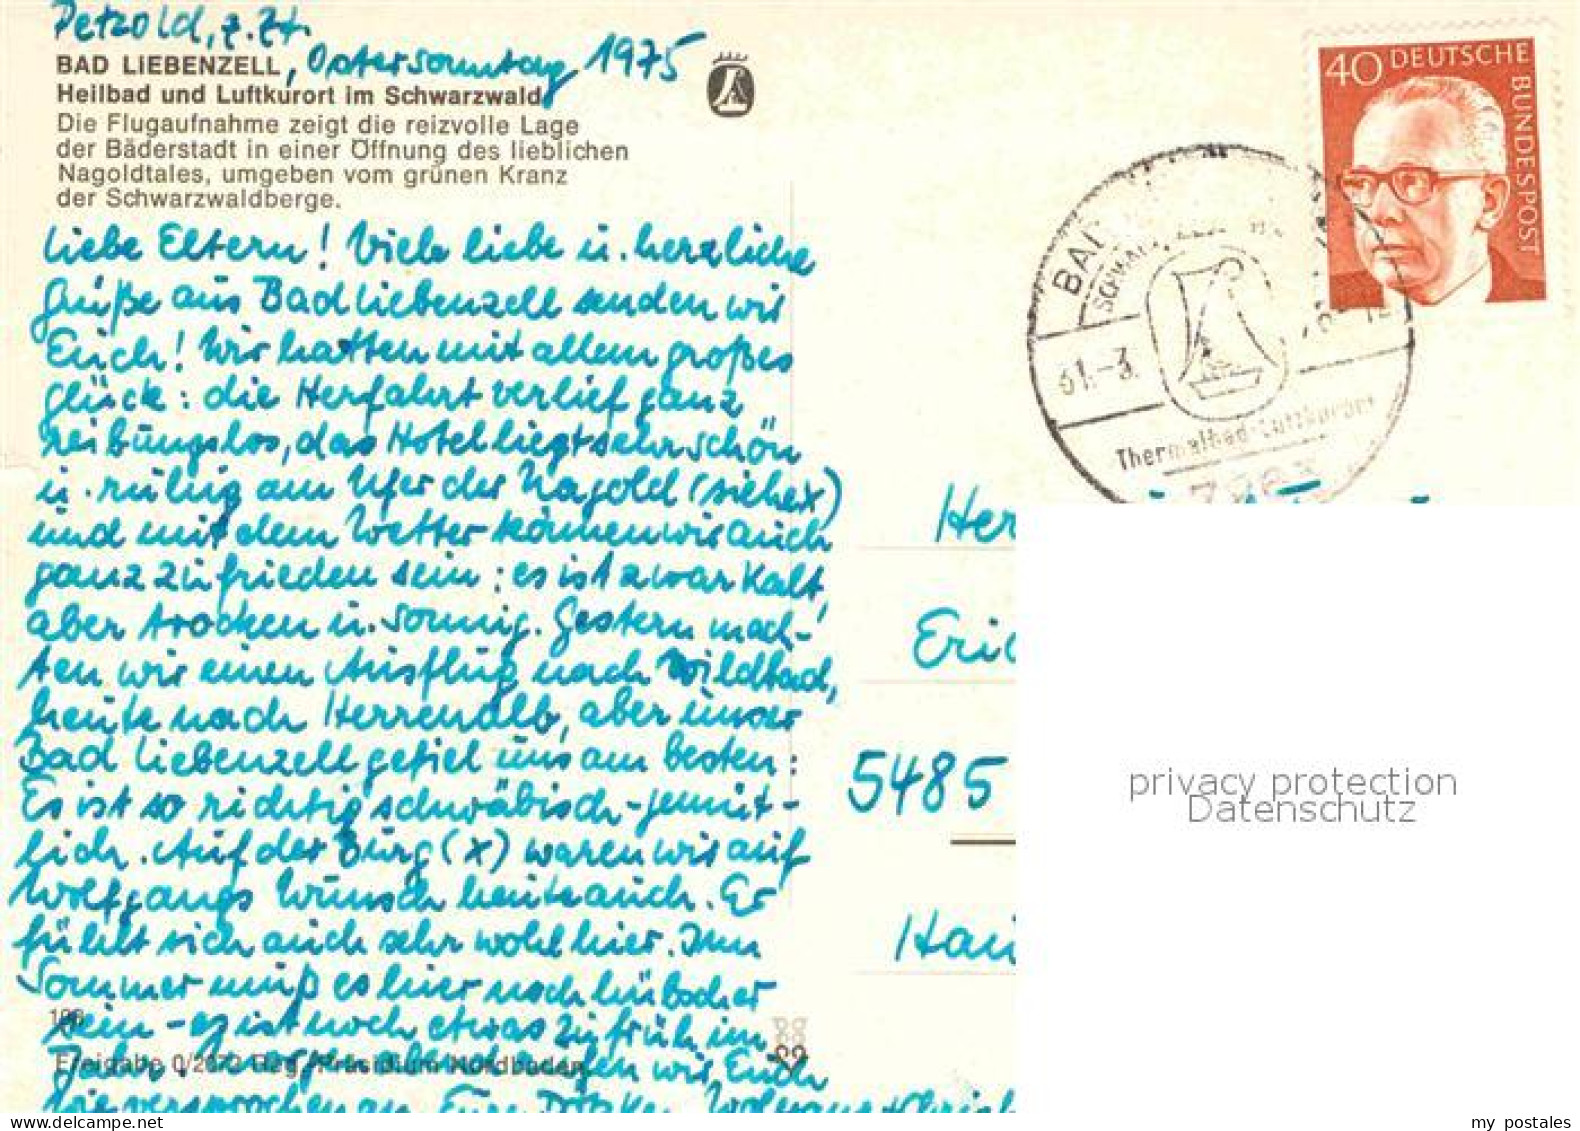 Petzold, z.Zt.
BAD LIEBENZELL, Ostersonntag 1975
Heilbad und Luftkurort im Schwarzwald
Die Flugaufnahme zeigt die reizvolle Lage
der Bäderstadt in einer Öffnung des lieblichen
Nagoldtales, umgeben vom grünen Kranz
der Schwarzwaldberge.
Liebe Eltern! Viele liebe u. herzliche
Grüße aus Bad Liebenzell senden wir
Euch! Wir hatten mit allem großes
Glück: die Herfahrt verlief ganz
reibungslos, das Hotel liegt sehr schön
u. ruhig am Ufer der Nagold (siehe x)
und mit dem Wetter können wir auch
ganz zufrieden sein: es ist zwar kalt,
aber trocken u. sonnig. Gestern mach-
ten wir einen Ausflug nach Wildbad,
heute nach Herrenalb, aber unser
Bad Liebenzell gefiel uns am besten:
Es ist so richtig schwäbisch-gemüt-
lich. Auf der Burg (x) waren wir auf
Wolfgangs Wunsch heute auch. Er
fühlt sich auch sehr wohl hier. Im
Sommer muß es hier noch hübscher
sein - es ist noch etwas zu früh im
Jahr. Morgen abend rufen wir Euch
wie versprochen an. Eure
Freigabe 0/2872 Reg. Präsidium Nordbaden
40 DEUTSCHE
BUNDESPOST
BAD
31.-3.
Thermalbad-Luftkurort
Her
Eric
5485
Hau
privacy protection
Datenschutz
my postales